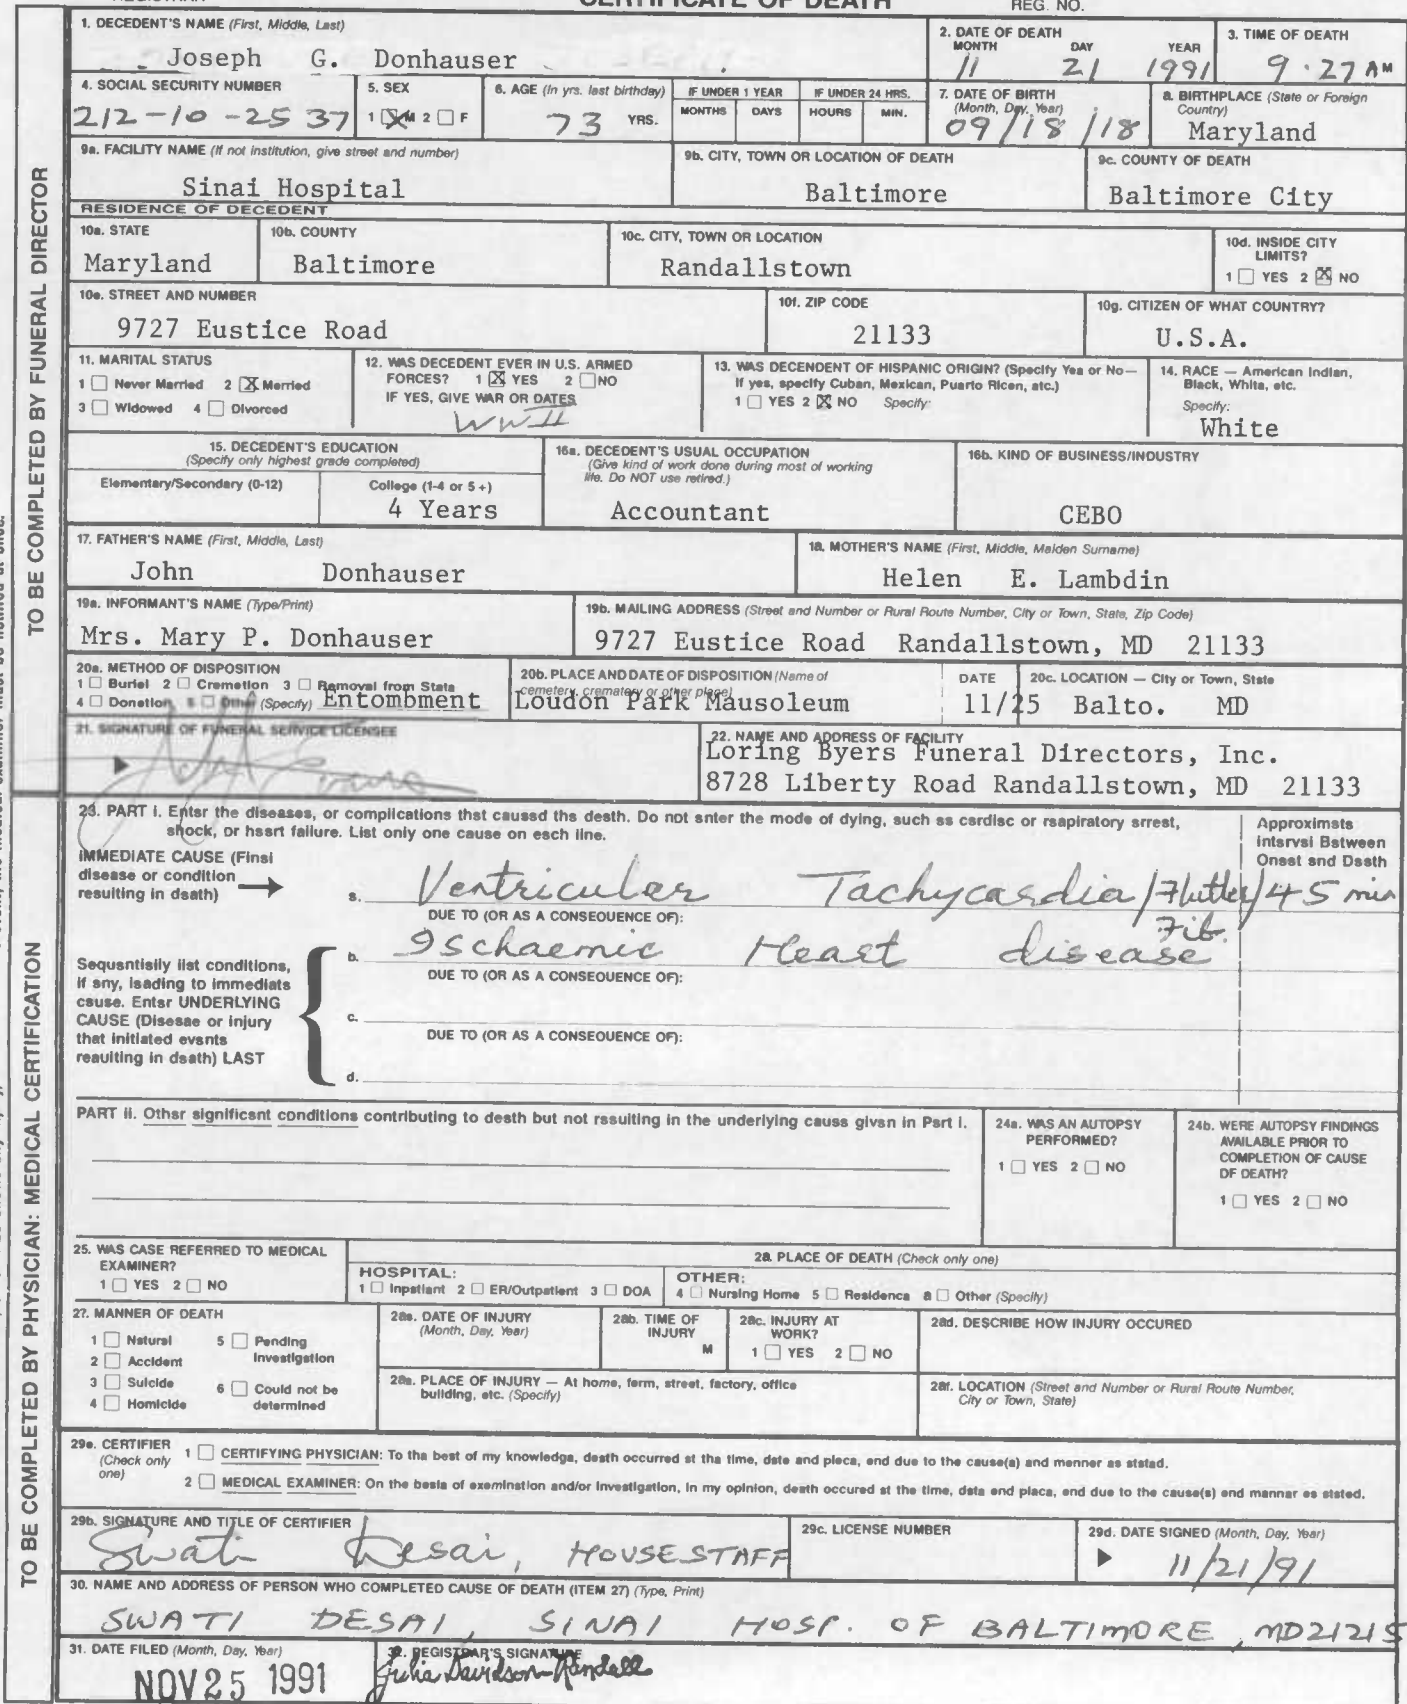 CERTIFICATE OF DEATH
REG. NO.
TO BE COMPLETED BY FUNERAL DIRECTOR
1. DECEDENT'S NAME (First, Middle, Last)
Joseph G. Donhauser
2. DATE OF DEATH
MONTH DAY YEAR
11 21 1991
3. TIME OF DEATH
9:27 AM
4. SOCIAL SECURITY NUMBER
212-10-2537
5. SEX
1 ☒ M 2 ☐ F
6. AGE (In yrs. last birthday)
73 YRS.
IF UNDER 1 YEAR
MONTHS DAYS
IF UNDER 24 HRS.
HOURS MIN.
7. DATE OF BIRTH
(Month, Day, Year)
09/18/18
8. BIRTHPLACE (State or Foreign
Country)
Maryland
9a. FACILITY NAME (If not institution, give street and number)
Sinai Hospital
9b. CITY, TOWN OR LOCATION OF DEATH
Baltimore
9c. COUNTY OF DEATH
Baltimore City
RESIDENCE OF DECEDENT
10a. STATE
Maryland
10b. COUNTY
Baltimore
10c. CITY, TOWN OR LOCATION
Randallstown
10d. INSIDE CITY
LIMITS?
1 ☐ YES 2 ☒ NO
10e. STREET AND NUMBER
9727 Eustice Road
10f. ZIP CODE
21133
10g. CITIZEN OF WHAT COUNTRY?
U.S.A.
11. MARITAL STATUS
1 ☐ Never Married 2 ☒ Married
3 ☐ Widowed 4 ☐ Divorced
12. WAS DECEDENT EVER IN U.S. ARMED
FORCES? 1 ☒ YES 2 ☐ NO
IF YES, GIVE WAR OR DATES
WWII
13. WAS DECENDENT OF HISPANIC ORIGIN? (Specify Yes or No—
If yes, specify Cuban, Mexican, Puerto Rican, etc.)
1 ☐ YES 2 ☒ NO Specify:
14. RACE — American Indian,
Black, White, etc.
Specify:
White
15. DECEDENT'S EDUCATION
(Specify only highest grade completed)
Elementary/Secondary (0-12)
College (1-4 or 5+)
4 Years
16a. DECEDENT'S USUAL OCCUPATION
(Give kind of work done during most of working
life. Do NOT use retired.)
Accountant
16b. KIND OF BUSINESS/INDUSTRY
CEBO
17. FATHER'S NAME (First, Middle, Last)
John Donhauser
18. MOTHER'S NAME (First, Middle, Maiden Surname)
Helen E. Lambdin
19a. INFORMANT'S NAME (Type/Print)
Mrs. Mary P. Donhauser
19b. MAILING ADDRESS (Street and Number or Rural Route Number, City or Town, State, Zip Code)
9727 Eustice Road Randallstown, MD 21133
20a. METHOD OF DISPOSITION
1 ☐ Burial 2 ☐ Cremation 3 ☐ Removal from State
4 ☐ Donation 5 ☐ Other (Specify) Entombment
20b. PLACE AND DATE OF DISPOSITION (Name of
cemetery, crematory or other place)
Loudon Park Mausoleum
DATE
11/25
20c. LOCATION — City or Town, State
Balto. MD
21. SIGNATURE OF FUNERAL SERVICE LICENSEE
22. NAME AND ADDRESS OF FACILITY
Loring Byers Funeral Directors, Inc.
8728 Liberty Road Randallstown, MD 21133
TO BE COMPLETED BY PHYSICIAN: MEDICAL CERTIFICATION
23. PART I. Enter the diseases, or complications that caused the death. Do not enter the mode of dying, such as cardiac or respiratory arrest,
shock, or heart failure. List only one cause on each line.
Approximate
Interval Between
Onset and Death
IMMEDIATE CAUSE (Final
disease or condition
resulting in death)
a. Ventricular Tachycardia/Flutter/ 45 min
Fib.
DUE TO (OR AS A CONSEQUENCE OF):
b. Ischaemic Heart disease
DUE TO (OR AS A CONSEQUENCE OF):
c.
DUE TO (OR AS A CONSEQUENCE OF):
d.
Sequentially list conditions,
if any, leading to immediate
cause. Enter UNDERLYING
CAUSE (Disease or injury
that initiated events
resulting in death) LAST
PART II. Other significant conditions contributing to death but not resulting in the underlying cause given in Part I.
24a. WAS AN AUTOPSY
PERFORMED?
1 ☐ YES 2 ☐ NO
24b. WERE AUTOPSY FINDINGS
AVAILABLE PRIOR TO
COMPLETION OF CAUSE
OF DEATH?
1 ☐ YES 2 ☐ NO
25. WAS CASE REFERRED TO MEDICAL
EXAMINER?
1 ☐ YES 2 ☐ NO
26. PLACE OF DEATH (Check only one)
HOSPITAL:
1 ☐ Inpatient 2 ☐ ER/Outpatient 3 ☐ DOA
OTHER:
4 ☐ Nursing Home 5 ☐ Residence 6 ☐ Other (Specify)
27. MANNER OF DEATH
1 ☐ Natural 5 ☐ Pending
Investigation
2 ☐ Accident
3 ☐ Suicide 6 ☐ Could not be
determined
4 ☐ Homicide
28a. DATE OF INJURY
(Month, Day, Year)
28b. TIME OF
INJURY
M
28c. INJURY AT
WORK?
1 ☐ YES 2 ☐ NO
28d. DESCRIBE HOW INJURY OCCURED
28e. PLACE OF INJURY — At home, farm, street, factory, office
building, etc. (Specify)
28f. LOCATION (Street and Number or Rural Route Number,
City or Town, State)
29a. CERTIFIER
(Check only
one)
1 ☐ CERTIFYING PHYSICIAN: To the best of my knowledge, death occurred at the time, date and place, and due to the cause(s) and manner as stated.
2 ☐ MEDICAL EXAMINER: On the basis of examination and/or investigation, in my opinion, death occured at the time, date and place, and due to the cause(s) and manner as stated.
29b. SIGNATURE AND TITLE OF CERTIFIER
Swati Desai, HOUSESTAFF
29c. LICENSE NUMBER
29d. DATE SIGNED (Month, Day, Year)
11/21/91
30. NAME AND ADDRESS OF PERSON WHO COMPLETED CAUSE OF DEATH (ITEM 27) (Type, Print)
SWATI DESAI, SINAI HOSP. OF BALTIMORE, MD21215
31. DATE FILED (Month, Day, Year)
NOV 25 1991
32. REGISTRAR'S SIGNATURE
Julia Davidson-Randall